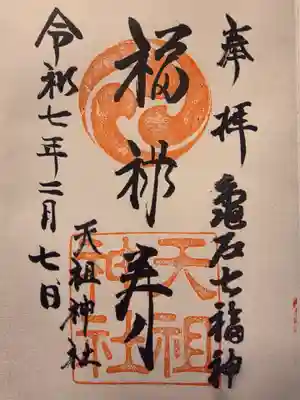 奉拝
龜戸七福神
福禄寿
天祖神社
天祖神社
令和七年二月七日